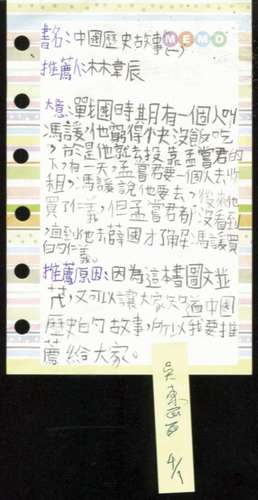 書名:中國歷史故事(一)
MEMO
推薦人:林韋辰
大意:戰國時期有一個人叫
馮諼,他窮得快沒飯吃
,於是他就去投靠孟嘗君的
下,有一天,孟嘗君要一個人去收
租,馮諼說他要去,後來他
買了仁義,但孟嘗君都沒看到
直到他去薛國才了解馮諼買
白的仁義。
推薦原因:因為這本書圖文並
茂,又可以讓大家知道中國
歷史白勺故事,所以我要推
薦給大家。
4/1